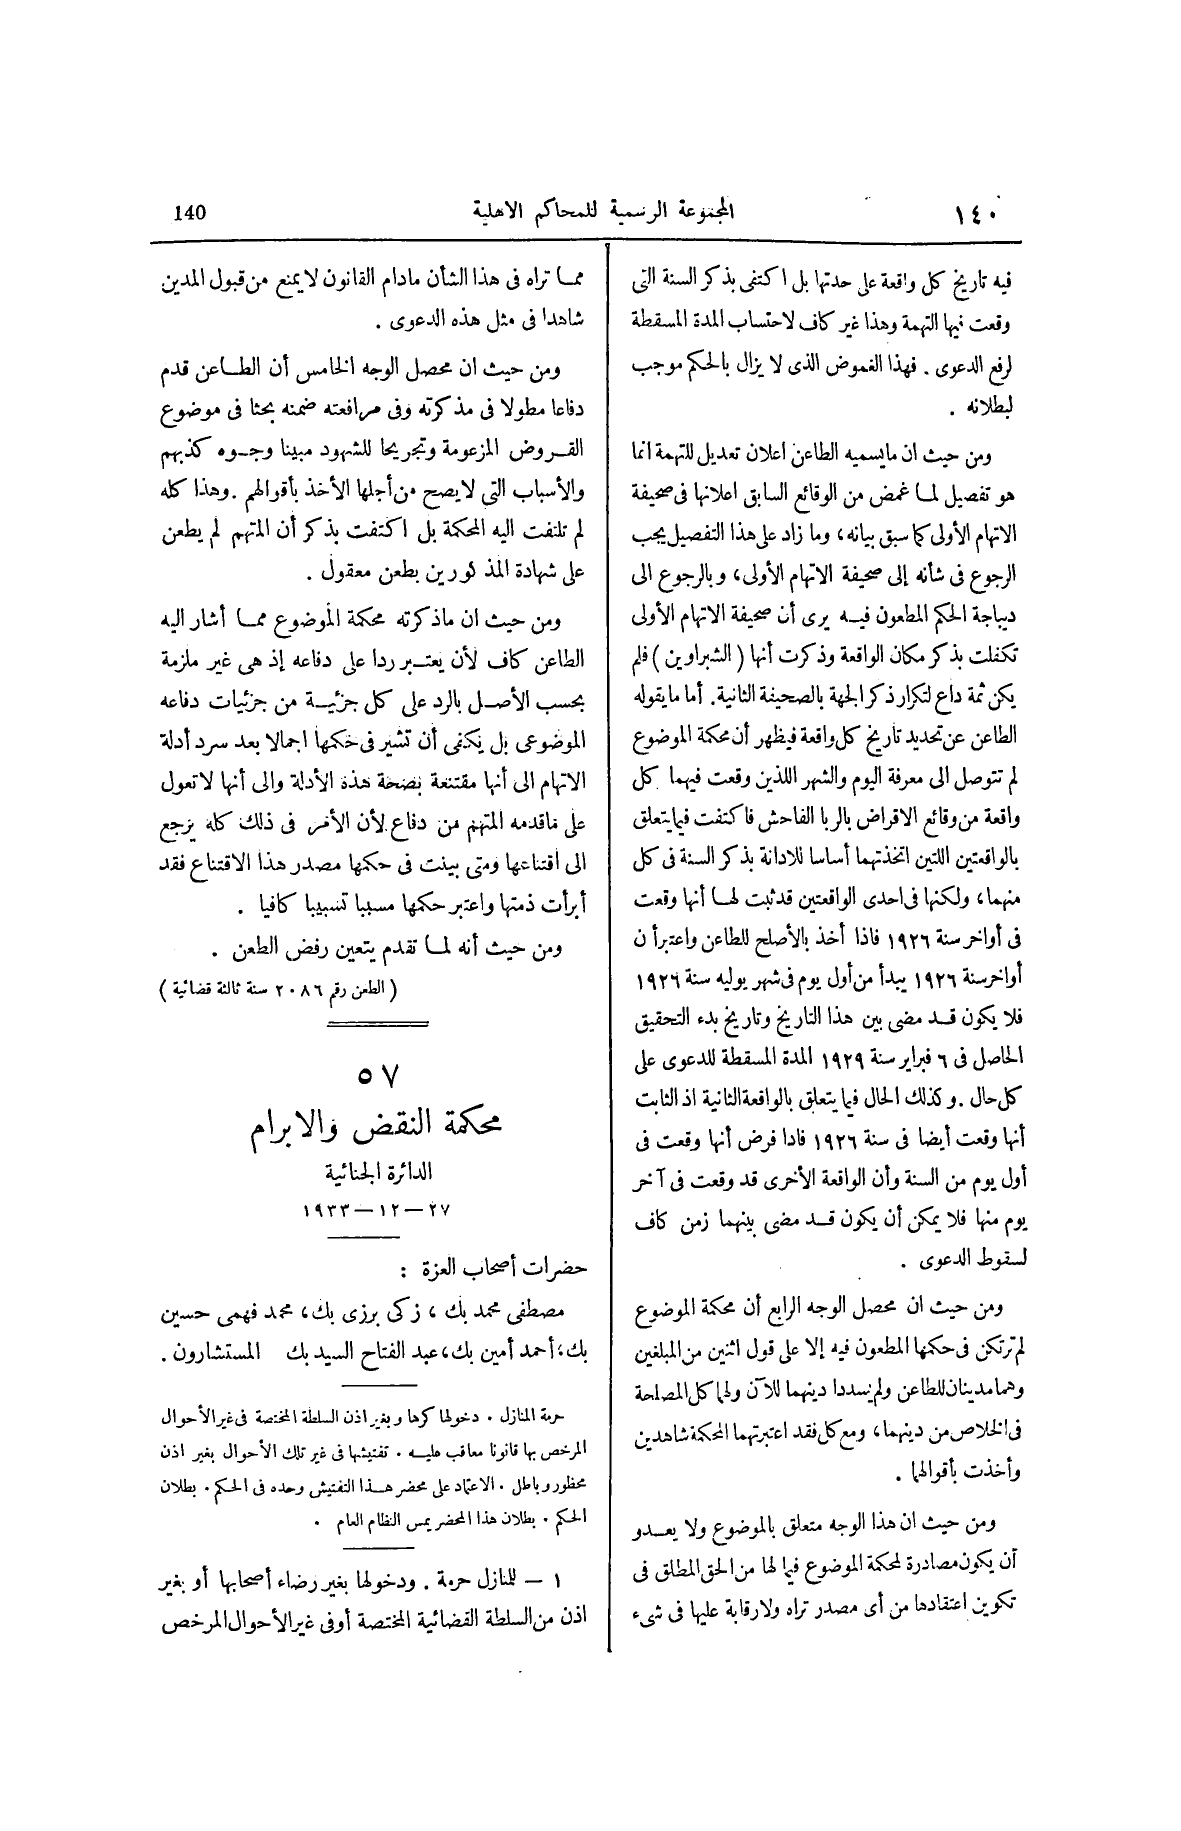 ١٤٠
المجموعة الرسمية للمحاكم الاهلية
140
فيه تاريخ كل واقعة على حدتها بل اكتفى بذكر السنة التى
وقعت فيها التهمة وهذا غير كاف لاحتساب المدة المسقطة
لرفع الدعوى . فهذا الغموض الذى لا يزال بالحكم موجب
لبطلانه .
ومن حيث ان مايسميه الطاعن اعلان تعديل للتهمة انما
هو تفصيل لما غمض من الوقائع السابق اعلانها فى صحيفة
الاتهام الأولى كما سبق بيانه، وما زاد على هذا التفصيل يجب
الرجوع فى شأنه إلى صحيفة الاتهام الأولى، وبالرجوع الى
ديباجة الحكم المطعون فيه يرى أن صحيفة الاتهام الأولى
تكفلت بذكر مكان الواقعة وذكرت أنها (الشبراوين) فلم
يكن ثمة داع لتكرار ذكر الجهة بالصحيفة الثانية. أما مايقوله
الطاعن عن تحديد تاريخ كل واقعة فيظهر أن محكمة الموضوع
لم تتوصل الى معرفة اليوم والشهر اللذين وقعت فيهما كل
واقعة من وقائع الاقراض بالربا الفاحش فاكتفت فيما يتعلق
بالواقعتين اللتين اتخذتهما أساسا للادانة بذكر السنة فى كل
منهما، ولكنها فى احدى الواقعتين قد ثبت لها أنها وقعت
فى أواخر سنة ١٩٢٦ فاذا أخذ بالأصلح للطاعن واعتبر أن
أواخر سنة ١٩٢٦ يبدأ من أول يوم فى شهر يوليه سنة ١٩٢٦
فلا يكون قد مضى بين هذا التاريخ وتاريخ بدء التحقيق
الحاصل فى ٦ فبراير سنة ١٩٢٩ المدة المسقطة للدعوى على
كل حال . وكذلك الحال فيما يتعلق بالواقعة الثانية اذ الثابت
أنها وقعت أيضا فى سنة ١٩٢٦ فاذا فرض أنها وقعت فى
أول يوم من السنة وأن الواقعة الأخرى قد وقعت فى آخر
يوم منها فلا يمكن أن يكون قد مضى بينهما زمن كاف
لسقوط الدعوى .
ومن حيث ان محصل الوجه الرابع أن محكمة الموضوع
لم ترتكن فى حكمها المطعون فيه إلا على قول اثنين من المبلغين
وهما مدينان للطاعن ولم يسددا دينهما للآن ولهما كل المصلحة
فى الخلاص من دينهما، ومع كل فقد اعتبرتهما المحكمة شاهدين
وأخذت بأقوالهما .
ومن حيث ان هذا الوجه متعلق بالموضوع ولا يعدو
أن يكون مصادرة لمحكمة الموضوع فيما لها من الحق المطلق فى
تكوين اعتقادها من أى مصدر تراه ولا رقابة عليها فى شىء
مما تراه فى هذا الشأن مادام القانون لا يمنع من قبول المدين
شاهدا فى مثل هذه الدعوى .
ومن حيث ان محصل الوجه الخامس أن الطاعن قدم
دفاعا مطولا فى مذكرته وفى مرافعته ضمنه بحثا فى موضوع
القروض المزعومة وتجريحا للشهود مبينا وجوه كذبهم
والأسباب التى لا يصح من أجلها الأخذ بأقوالهم . وهذا كله
لم تلتفت اليه المحكمة بل اكتفت بذكر أن المتهم لم يطعن
على شهادة المذكورين بطعن معقول .
ومن حيث ان ماذكرته محكمة الموضوع مما أشار اليه
الطاعن كاف لأن يعتبر ردا على دفاعه إذ هى غير ملزمة
بحسب الأصل بالرد على كل جزئية من جزئيات دفاعه
الموضوعى بل يكفى أن تشير فى حكمها اجمالا بعد سرد أدلة
الاتهام الى أنها مقتنعة بصحة هذه الأدلة والى أنها لا تعول
على ماقدمه المتهم من دفاع لأن الأمر فى ذلك كله يرجع
الى اقتناعها ومتى بينت فى حكمها مصدر هذا الاقتناع فقد
أبرأت ذمتها واعتبر حكمها مسببا تسبيبا كافيا .
ومن حيث أنه لما تقدم يتعين رفض الطعن .
( الطعن رقم ٢٠٨٦ سنة ثالثة قضائية )
٥٧
محكمة النقض والابرام
الدائرة الجنائية
٢٧ – ١٢ – ١٩٣٣
حضرات أصحاب العزة :
مصطفى محمد بك ، زكى برزى بك، محمد فهمى حسين
بك، أحمد أمين بك، عبد الفتاح السيد بك المستشارون .
حرمة المنازل . دخولها كرها وبغير اذن السلطة المختصة فى غير الأحوال
المرخص بها قانونا معاقب عليه . تفتيشها فى غير تلك الأحوال بغير اذن
محظور وباطل . الاعتماد على محضر هذا التفتيش وحده فى الحكم . بطلان
الحكم . بطلان هذا المحضر يمس النظام العام .
١ – للمنازل حرمة . ودخولها بغير رضاء أصحابها أو بغير
اذن من السلطة القضائية المختصة أو فى غير الأحوال المرخص